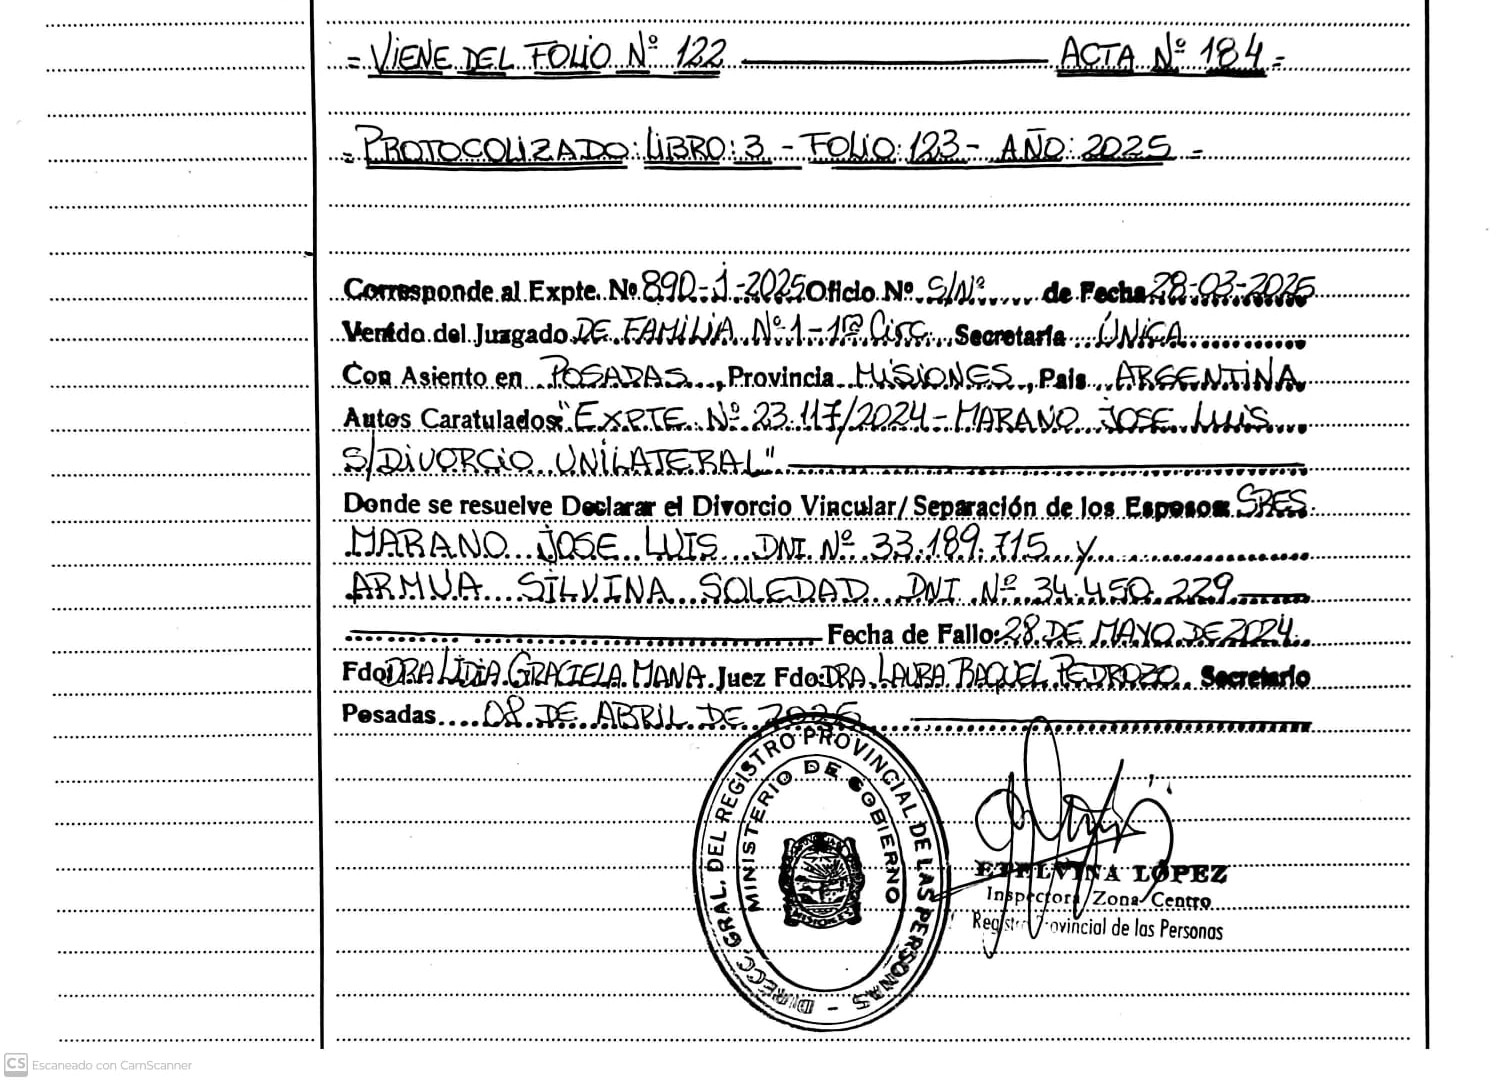 = VIENE DEL FOLIO Nº 122 ACTA Nº 184 =
= PROTOCOLIZADO: LIBRO: 3 - FOLIO: 123 - AÑO: 2025 =
Corresponde al Expte. Nº 890-J-2025 Oficio Nº S/Nº de Fecha 28-03-2025
Venido del Juzgado DE FAMILIA Nº 1 - 1ra Circ. Secretaría ÚNICA
Con Asiento en POSADAS, Provincia MISIONES, Pais ARGENTINA
Autos Caratulados: "EXPTE Nº 23.117/2024 - MARANO JOSE LUIS
S/DIVORCIO UNILATERAL"
Donde se resuelve Declarar el Divorcio Vincular/ Separación de los Esposos: SRES
MARANO JOSE LUIS DNI Nº 33.189.715 y
ARMUA SILVINA SOLEDAD DNI Nº 34.450.229
Fecha de Fallo: 28 DE MAYO DE 2024
Fdo: DRA LIDIA GRACIELA MANA Juez Fdo: DRA. LAURA RAQUEL PEDROZO Secretario
Posadas 08 DE ABRIL DE 2025
DIRECC. GRAL. DEL REGISTRO PROVINCIAL DE LAS PERSONAS -
MINISTERIO DE GOBIERNO
MISIONES
ETELVINA LÓPEZ
Inspectora Zona Centro
Registro Provincial de las Personas
CS Escaneado con CamScanner